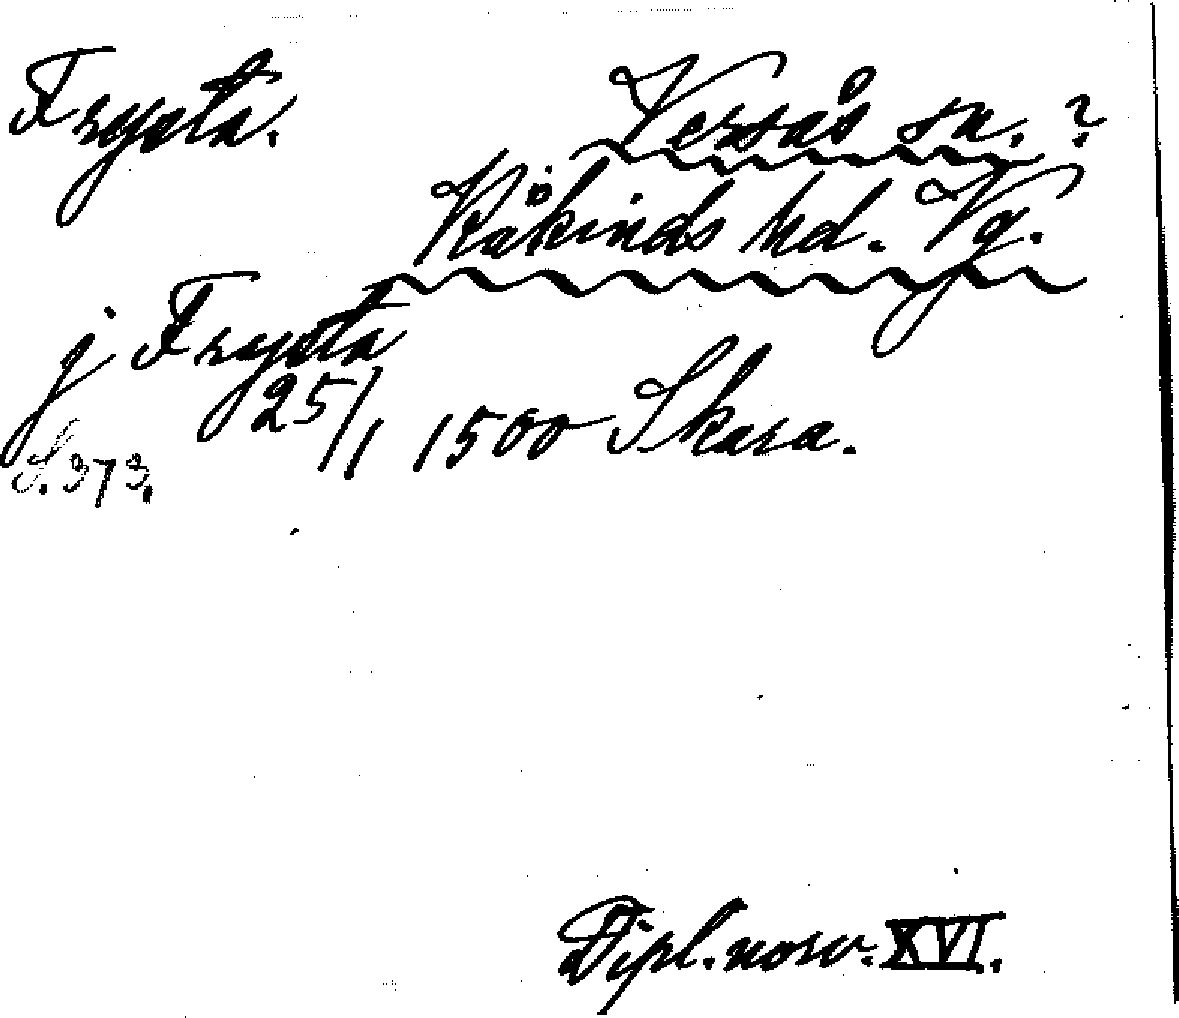 Frysta.
Versås sn. ?
Kåkinds hd. Vg.
j Frysta
25/1 1500 Skara.
S. 373.
Dipl. norv. XVI.